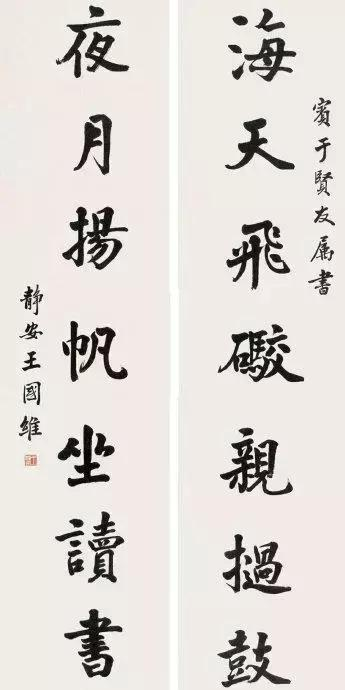 賓于賢友属書
海天飛礮親撾鼓
夜月揚帆坐讀書
静安王國維